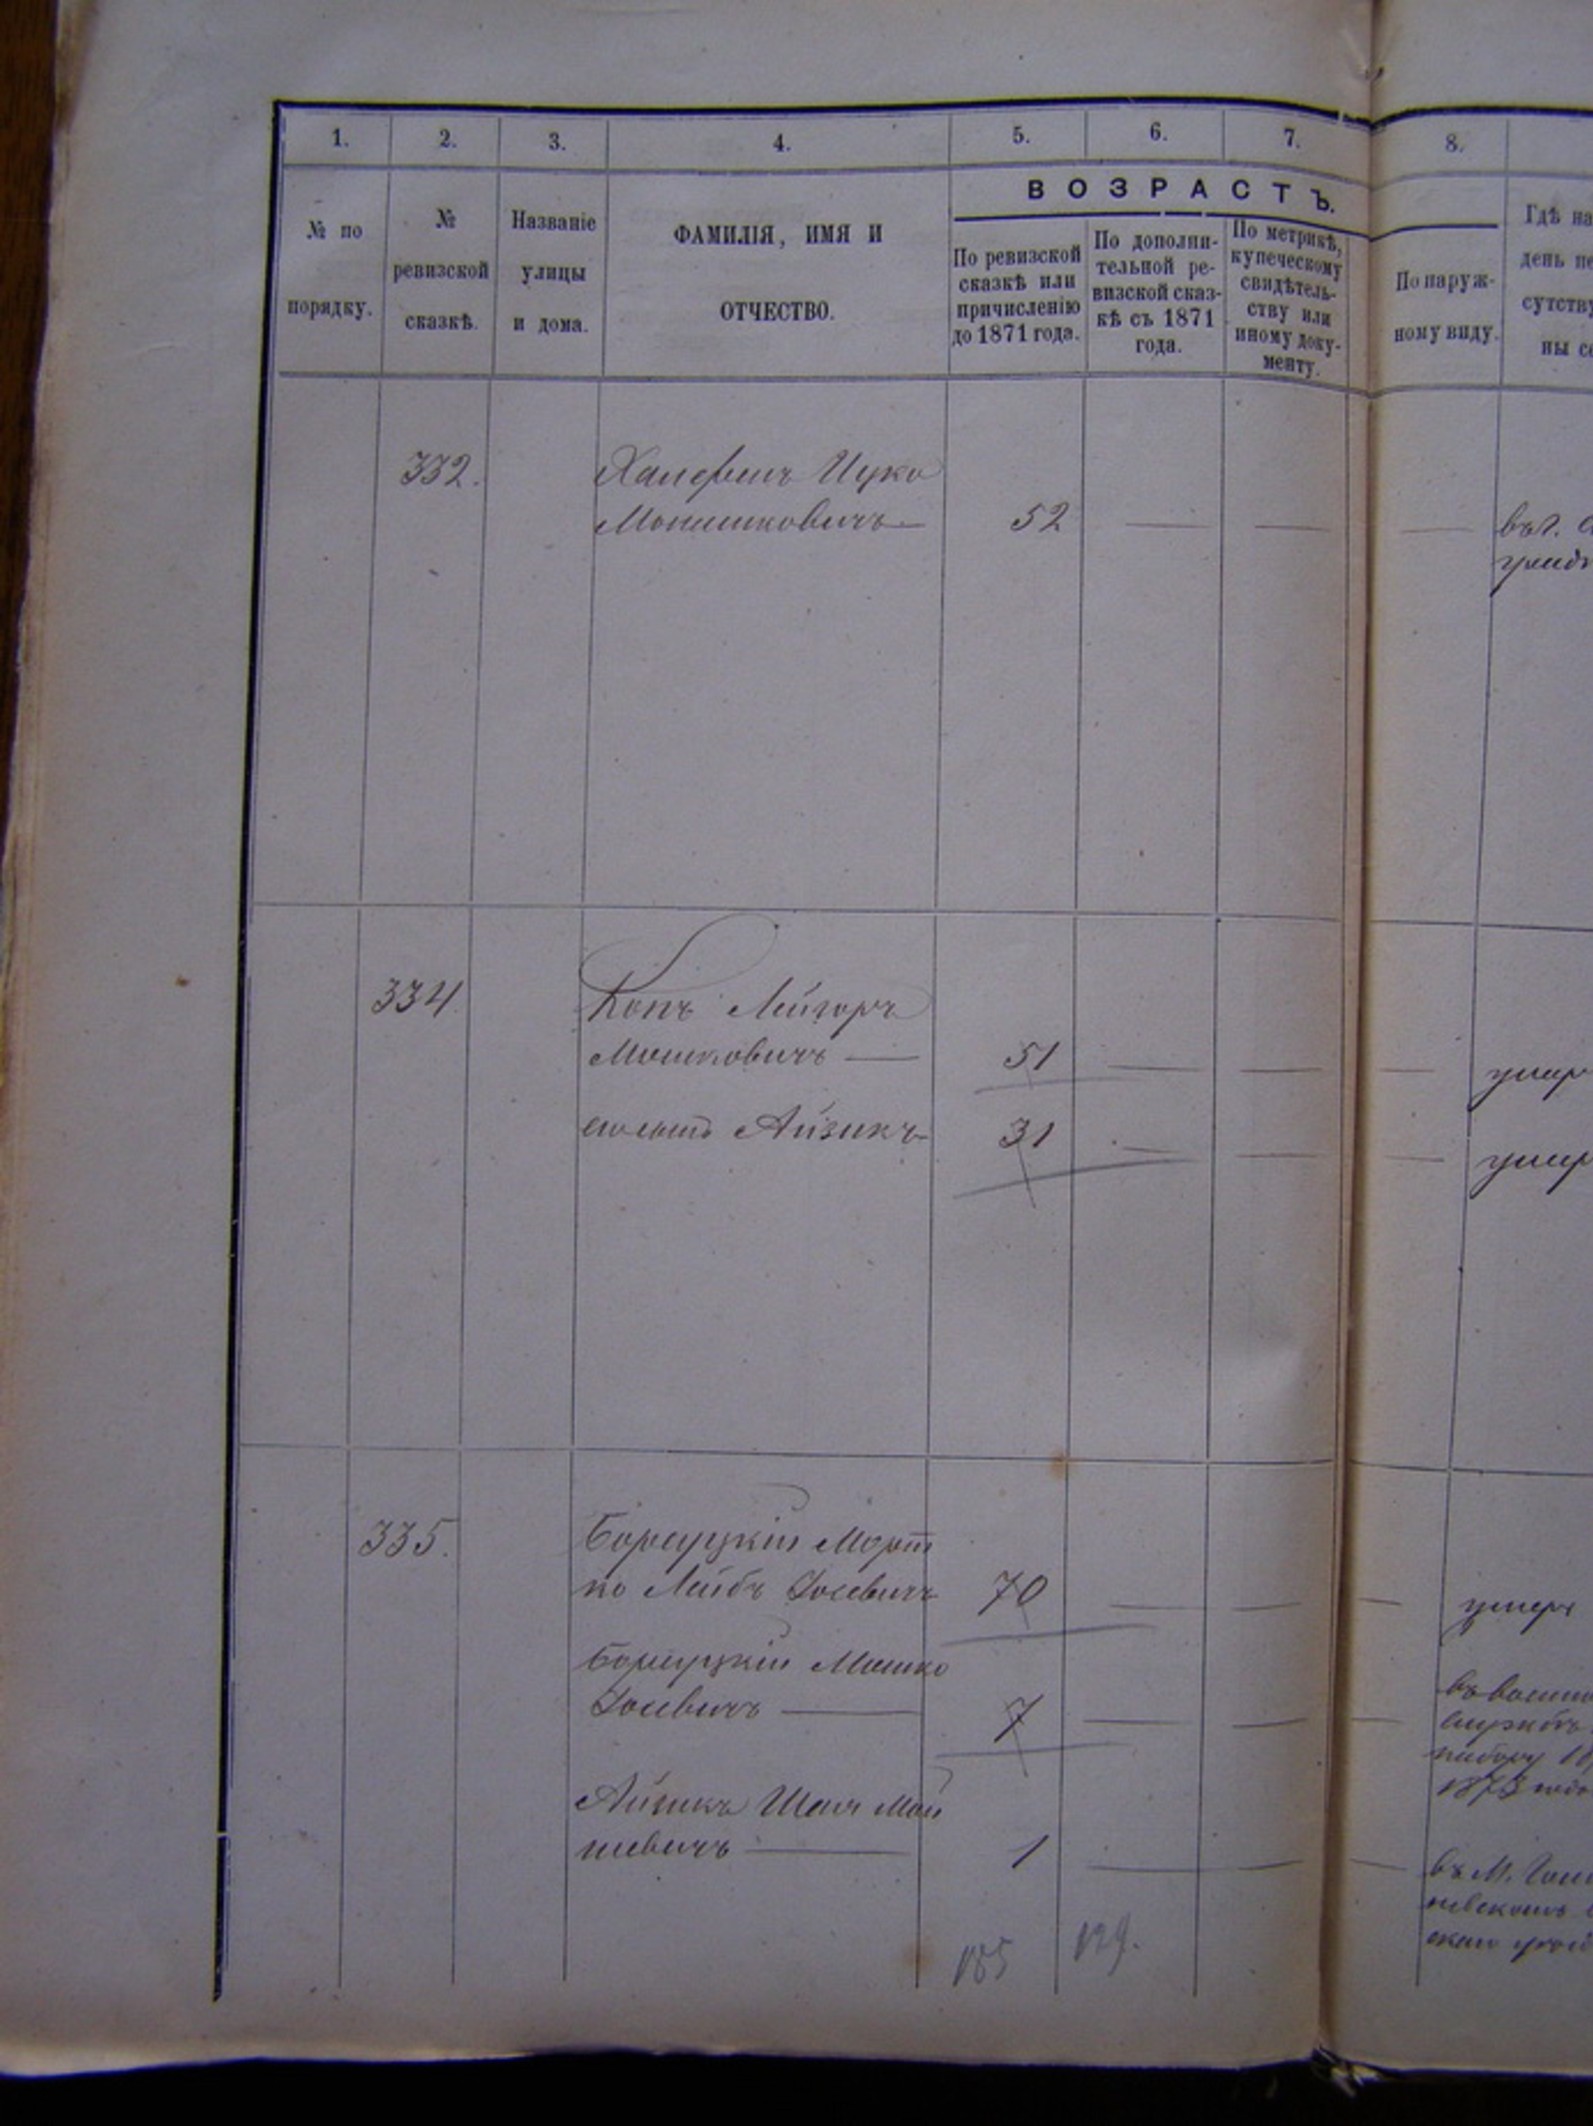 1. 2. 3. 4. 5. 6. 7. 8.
ВОЗРАСТЪ.
№ по
порядку.
№
ревизской
сказкѣ.
Названіе
улицы
и дома.
ФАМИЛІЯ, ИМЯ И
ОТЧЕСТВО.
По ревизской
сказкѣ или
причисленію
до 1871 года.
По дополни-
тельной ре-
визской сказ-
кѣ съ 1871
года.
По метрикѣ,
купеческому
свидѣтель-
ству или
иному доку-
менту.
По наруж-
ному виду.
Гдѣ на
день пе
сутству
ны се
332. Халефинъ Ицко
Мошковичъ — 52 — — — въ г.
334 Копъ Лейзоръ
Мошковичъ — 51 — — — умер
Айзикъ 31 — — — умер
335. Борецкій Морт
ко Лейбъ Іосевичъ 70 — — — умеръ
Борецкій Мошко
Іосевичъ — 7 — — —
службѣ
набору 18
1873 года
Айзикъ Шая Мов
шевичъ — 1 — — — въ М.
185 129.